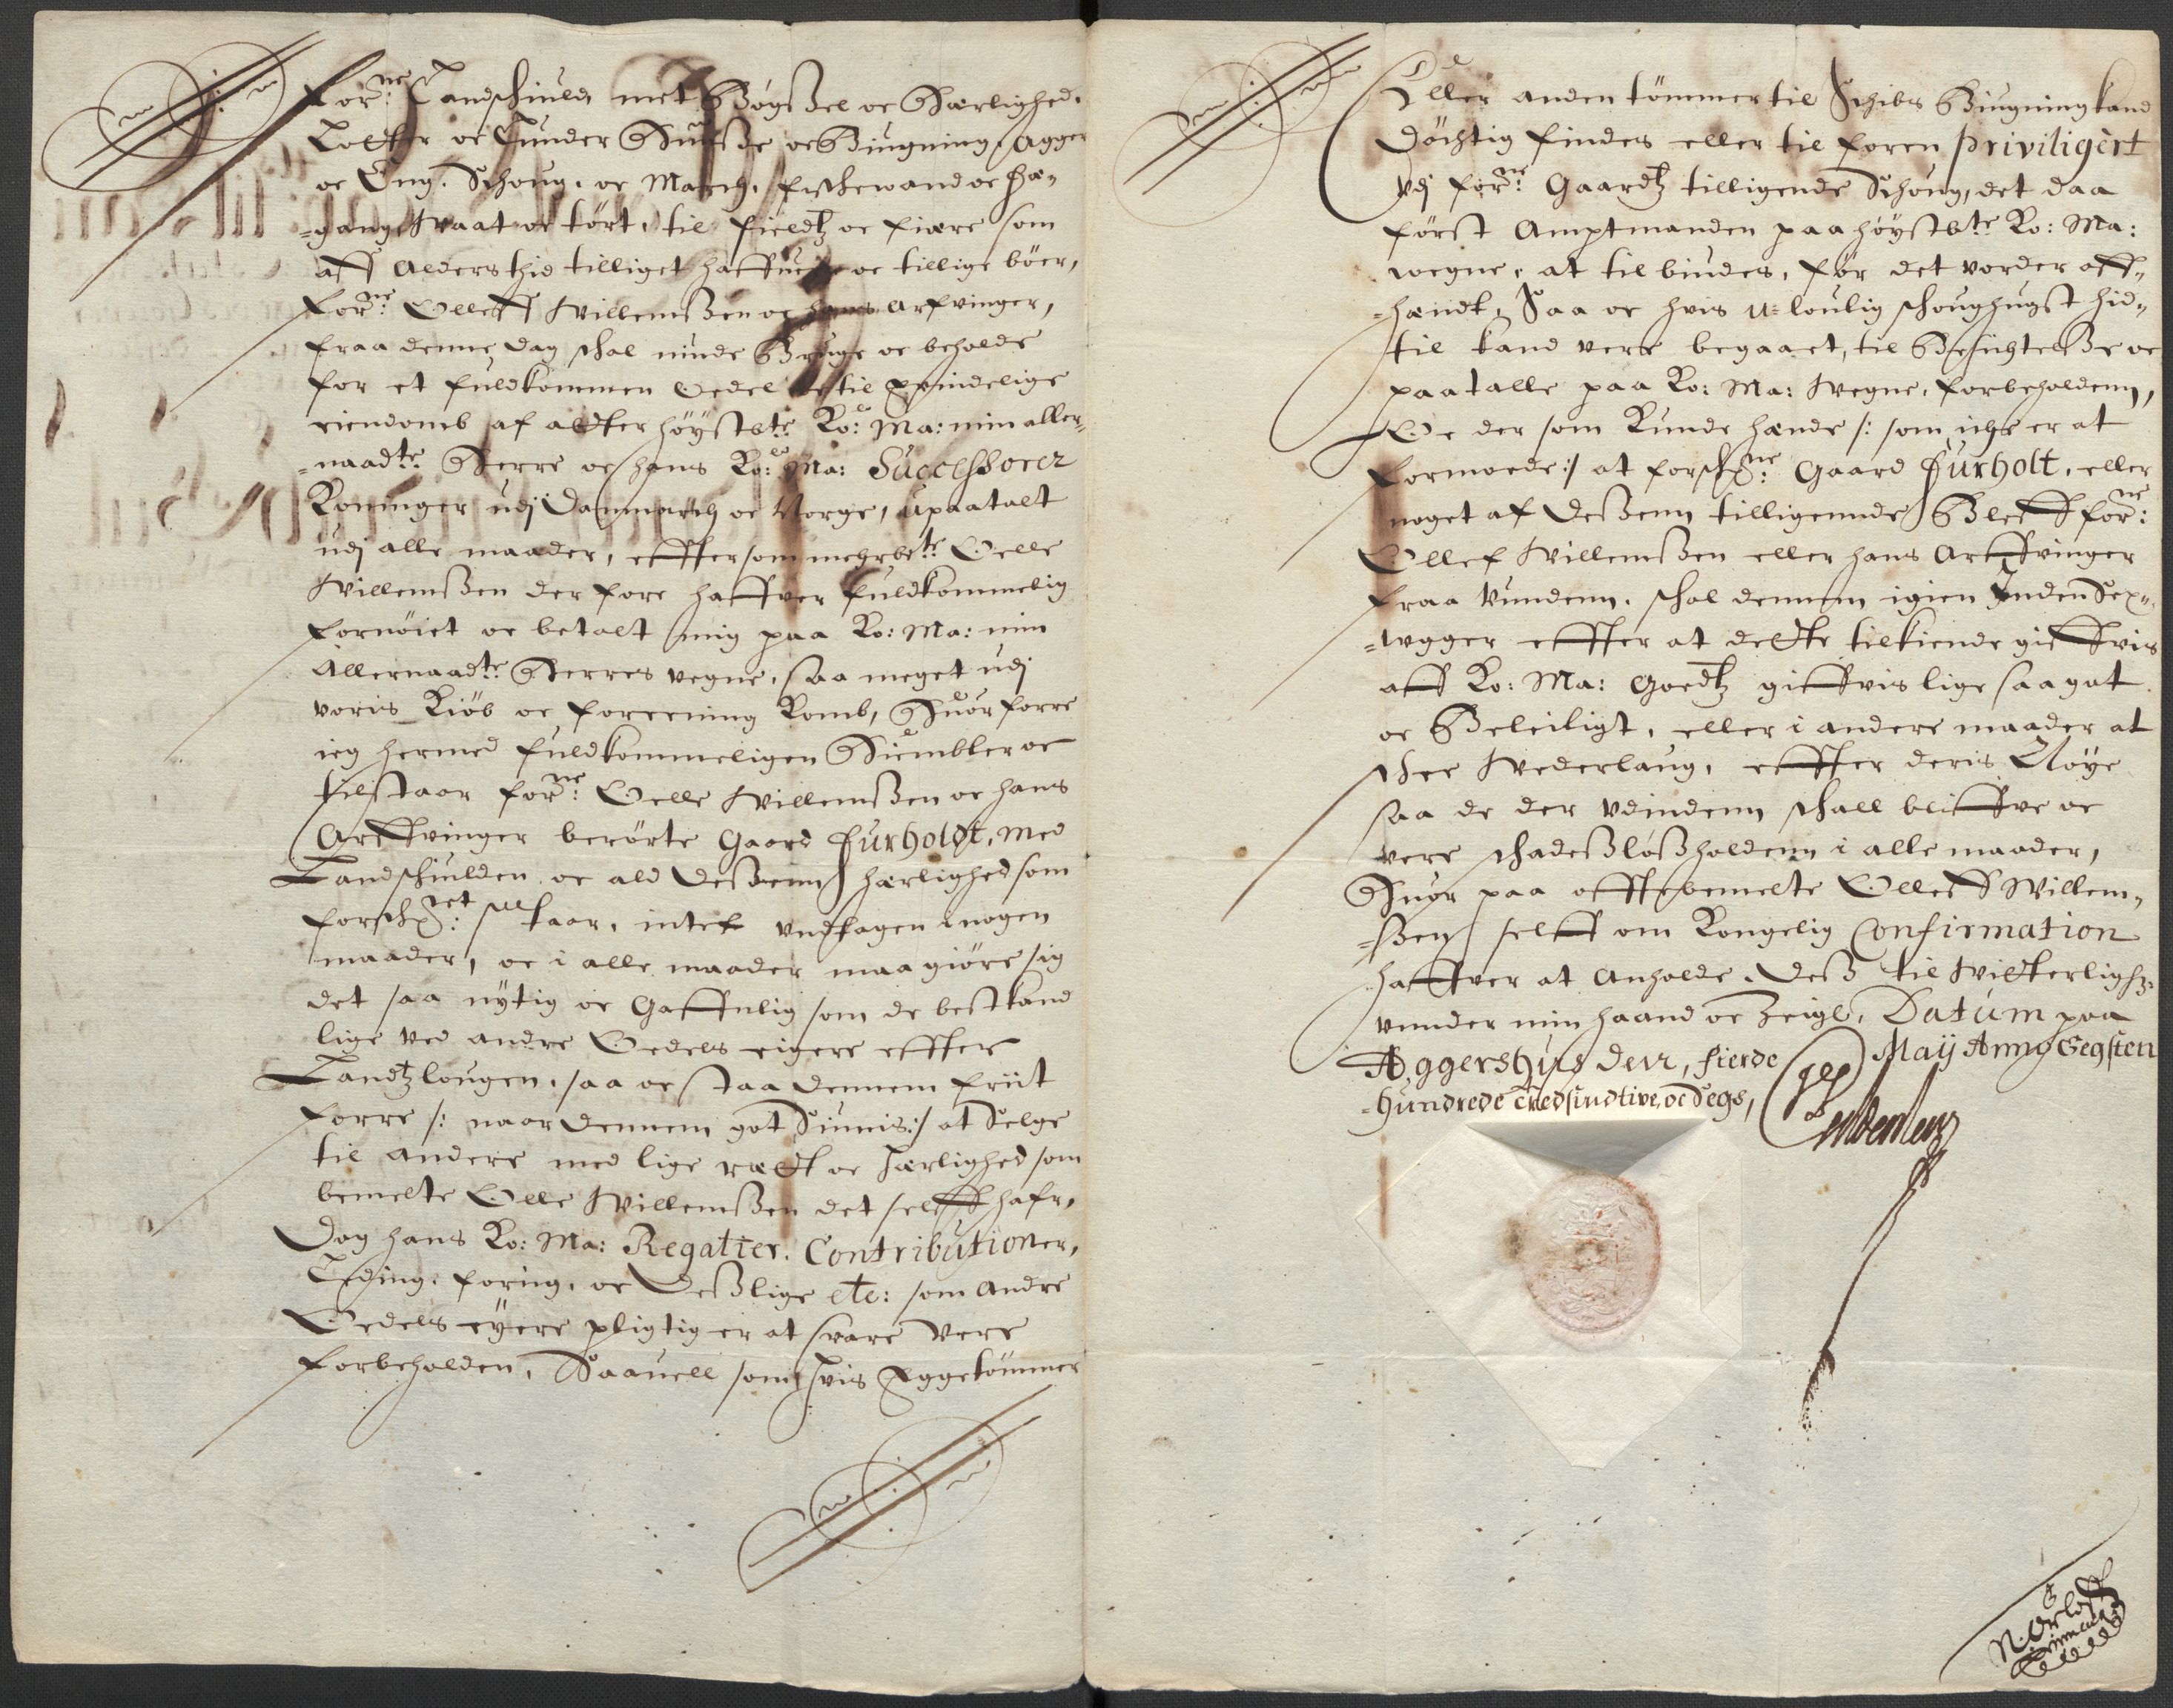 forne: Landschiuld, met Bögsel oc Herlighed,
Lotter oc Lunder Huusse oc Biugning, Agger
oc Eng. Schoug, oc March, fischewand oc fæ-
=gang Waat oc tört, til fieldtz oc fiære som
aff Alders thid tilliget haffuer oc tillige böer,
forne: Olleff Willemssen oc hans Arfvinger,
fraa denne dag schal niude Bruge oc beholde
for et fuldkommen Oedel oc til Evindelige
eiendomb af adtter höystbte: Ko: Ma: min aller-
=naadte: Herre oc hans Ko: Ma: Successorer
Koninger udj Danmarch oc Norge, Upaatalt
udj alle maader, efftersom mehrbte: Oelle
Willemssen der fore haffver fuldkommelig
fornöiet oc betalt mig paa Ko: Ma: min
Allernaadte: Herres vegne, saa meget udj
voris Kiöb oc foreening Komb, Huorforre
ieg hermed fuldkommeligen Hiembler oc
tilstaar forne: Oelle Willemssen oc hans
Arffvinger berörte Gaard Furholdt, med
Landschiulden oc ald dessenn herlighed som
forschet: staar, intet undtagen i nogen
maader, oc i alle maader maa giöre sig
det saa nÿtig oc Gaffnlig som de best kand
lige ved andre Oedels eigere effter
Landtzlougen, saa oc staa dennem friit
forre /: naar dennem got Siunis :/ at Selge
til andere med lige rædt oc herlighed som
bemelte Olle Willemssen det selff hafr,
Dog hans Ko: Ma: Regalier. Contributioner,
Leding, foring, oc desslige etc: som andre
Oedels eÿere pligtig er at svare vere
forbeholden, Saauell som hvis Eggetömmer
Eller anden tömmer til Schibs Biugning kand
döchtig findes eller til foren priviligert
Udj forne: Gaardtz tilligende Schoug, det daa
först Amptmanden paa höystbte: Ko: Ma:
wegne, at tilbiudes, för det vorder aff-
=hendt, Saa oc hvis u=loulig schoughugst hid-
til kand vere begaaet, til Besigtelse oc
paatalle paa Ko: Ma: Wegne, forbeholdenn,
Oc der som Kunde hende /: som iche er at
formoede :/ at forschne: Gaard Furholt, eller
noget af dessenn tilligennde Bleff forne:
Ollef Willemssen eller hans Arffvinger
fraa vundenn, schal dennem igien Inden Sex
=wgger effter at dette tilkiende giffvis
aff Ko: Ma: Goedtz giffvis lige saa got
oc Beleiligt, eller i andere maader at
schee Wederlaug, effter deris Nöye
saa de der Udindenn schall bliffve oc
vere schadesslössholdenn i alle maader,
Huor paa offtebemelte Olleff Willem-
=ssen selff om Kongelig Confirmation
haffver at Anholde. Dess til Witterlighed
vunder min haand oc Zeigl, Datum paa
Aggershus den, fierde Maÿ Anno Segsten
=hundrede tredsindtive oc Segs,